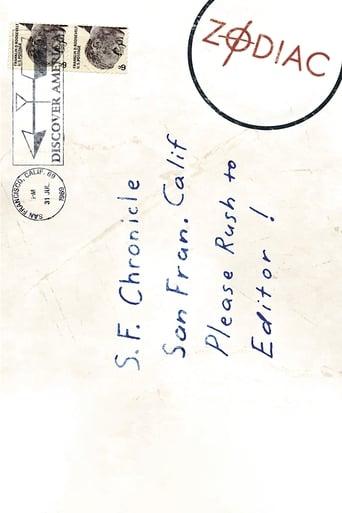 ZODIAC
FRANKLIN D. ROOSEVELT
U.S. POSTAGE
6¢
FRANKLIN D. ROOSEVELT
U.S. POSTAGE
6¢
DISCOVER AMERICA
SAN FRANCISCO, CALIF.
PM
31 JUL
1969
S.F. Chronicle
San Fran. Calif
Please Rush to
Editor !